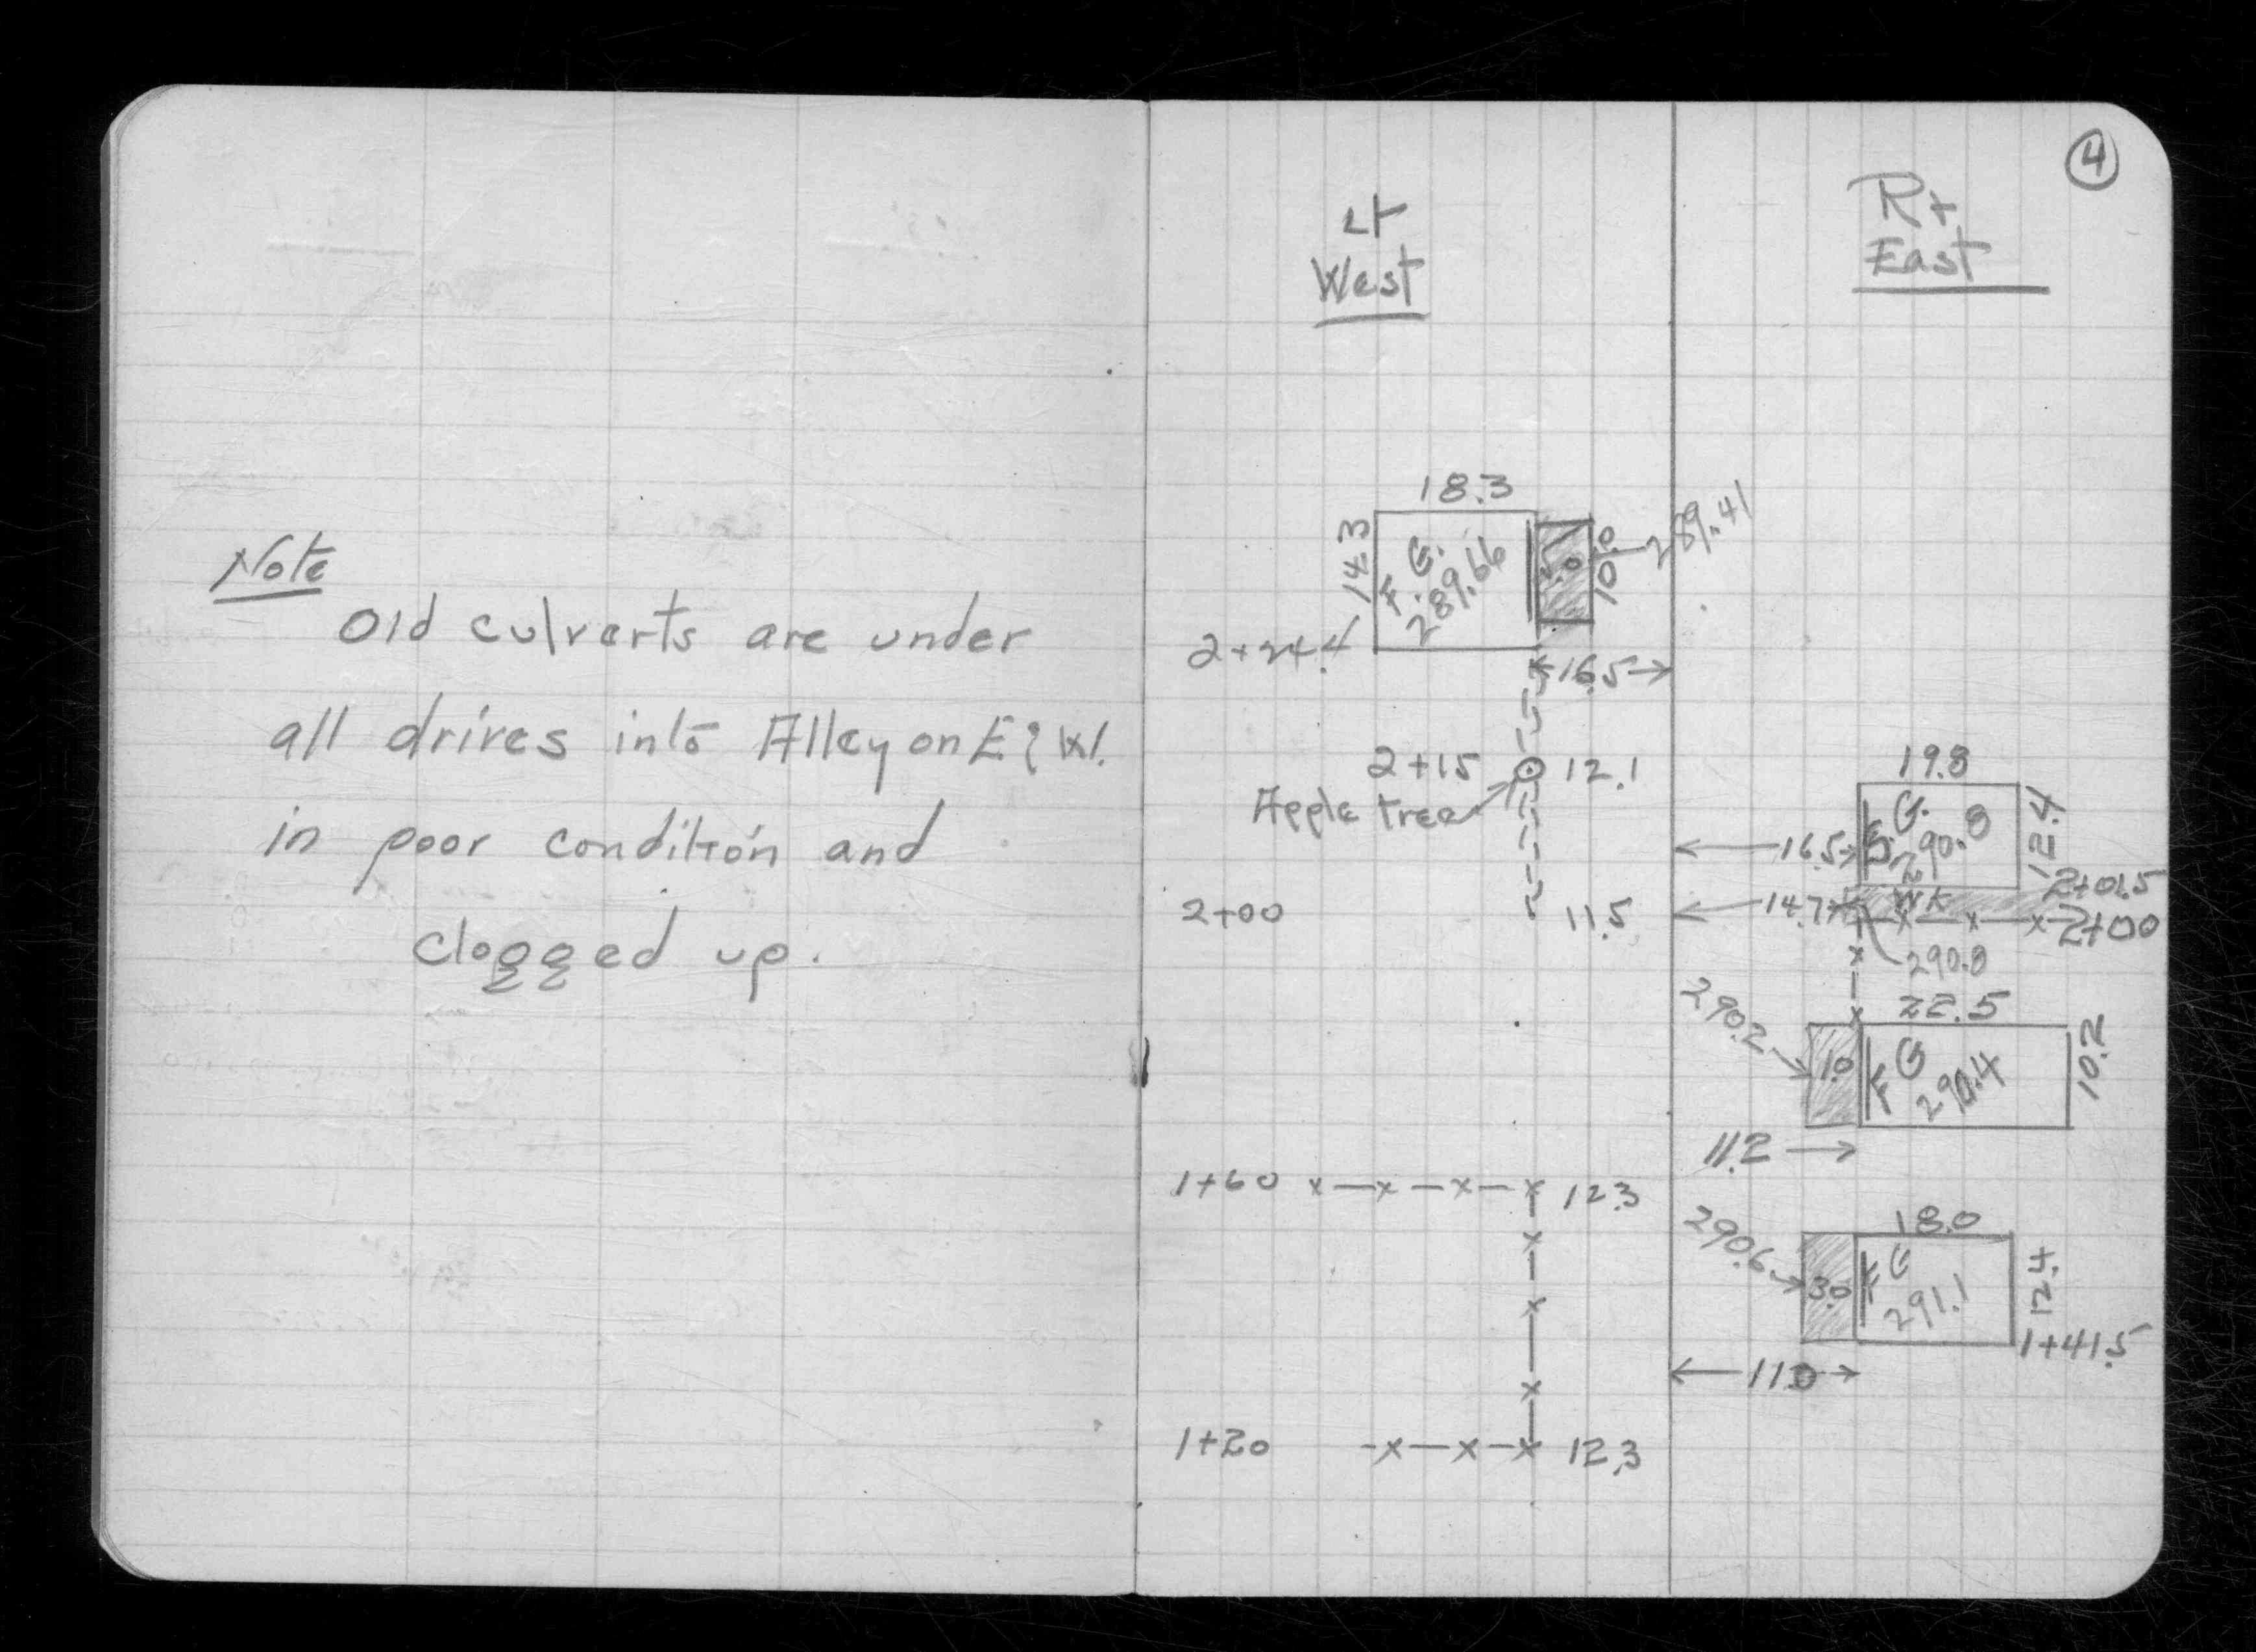 Note
Old culverts are under
all drives into Alley on E & W.
in poor condition and
clogged up.
4
Lt
West
Rt
East
18.3
14.3
F. G.
289.66
5.0
10.0
289.41
2+24.4
16.5
2+15
12.1
Apple tree
2+00
11.5
19.8
16.5
G.
290.8
12.4
2+01.5
14.7
WK
2+00
290.8
22.5
290.2
1.0
F G
290.4
10.2
11.2
1+60
12.3
18.0
290.6
3.0
F G
291.1
12.4
1+41.5
11.0
1+20
12.3